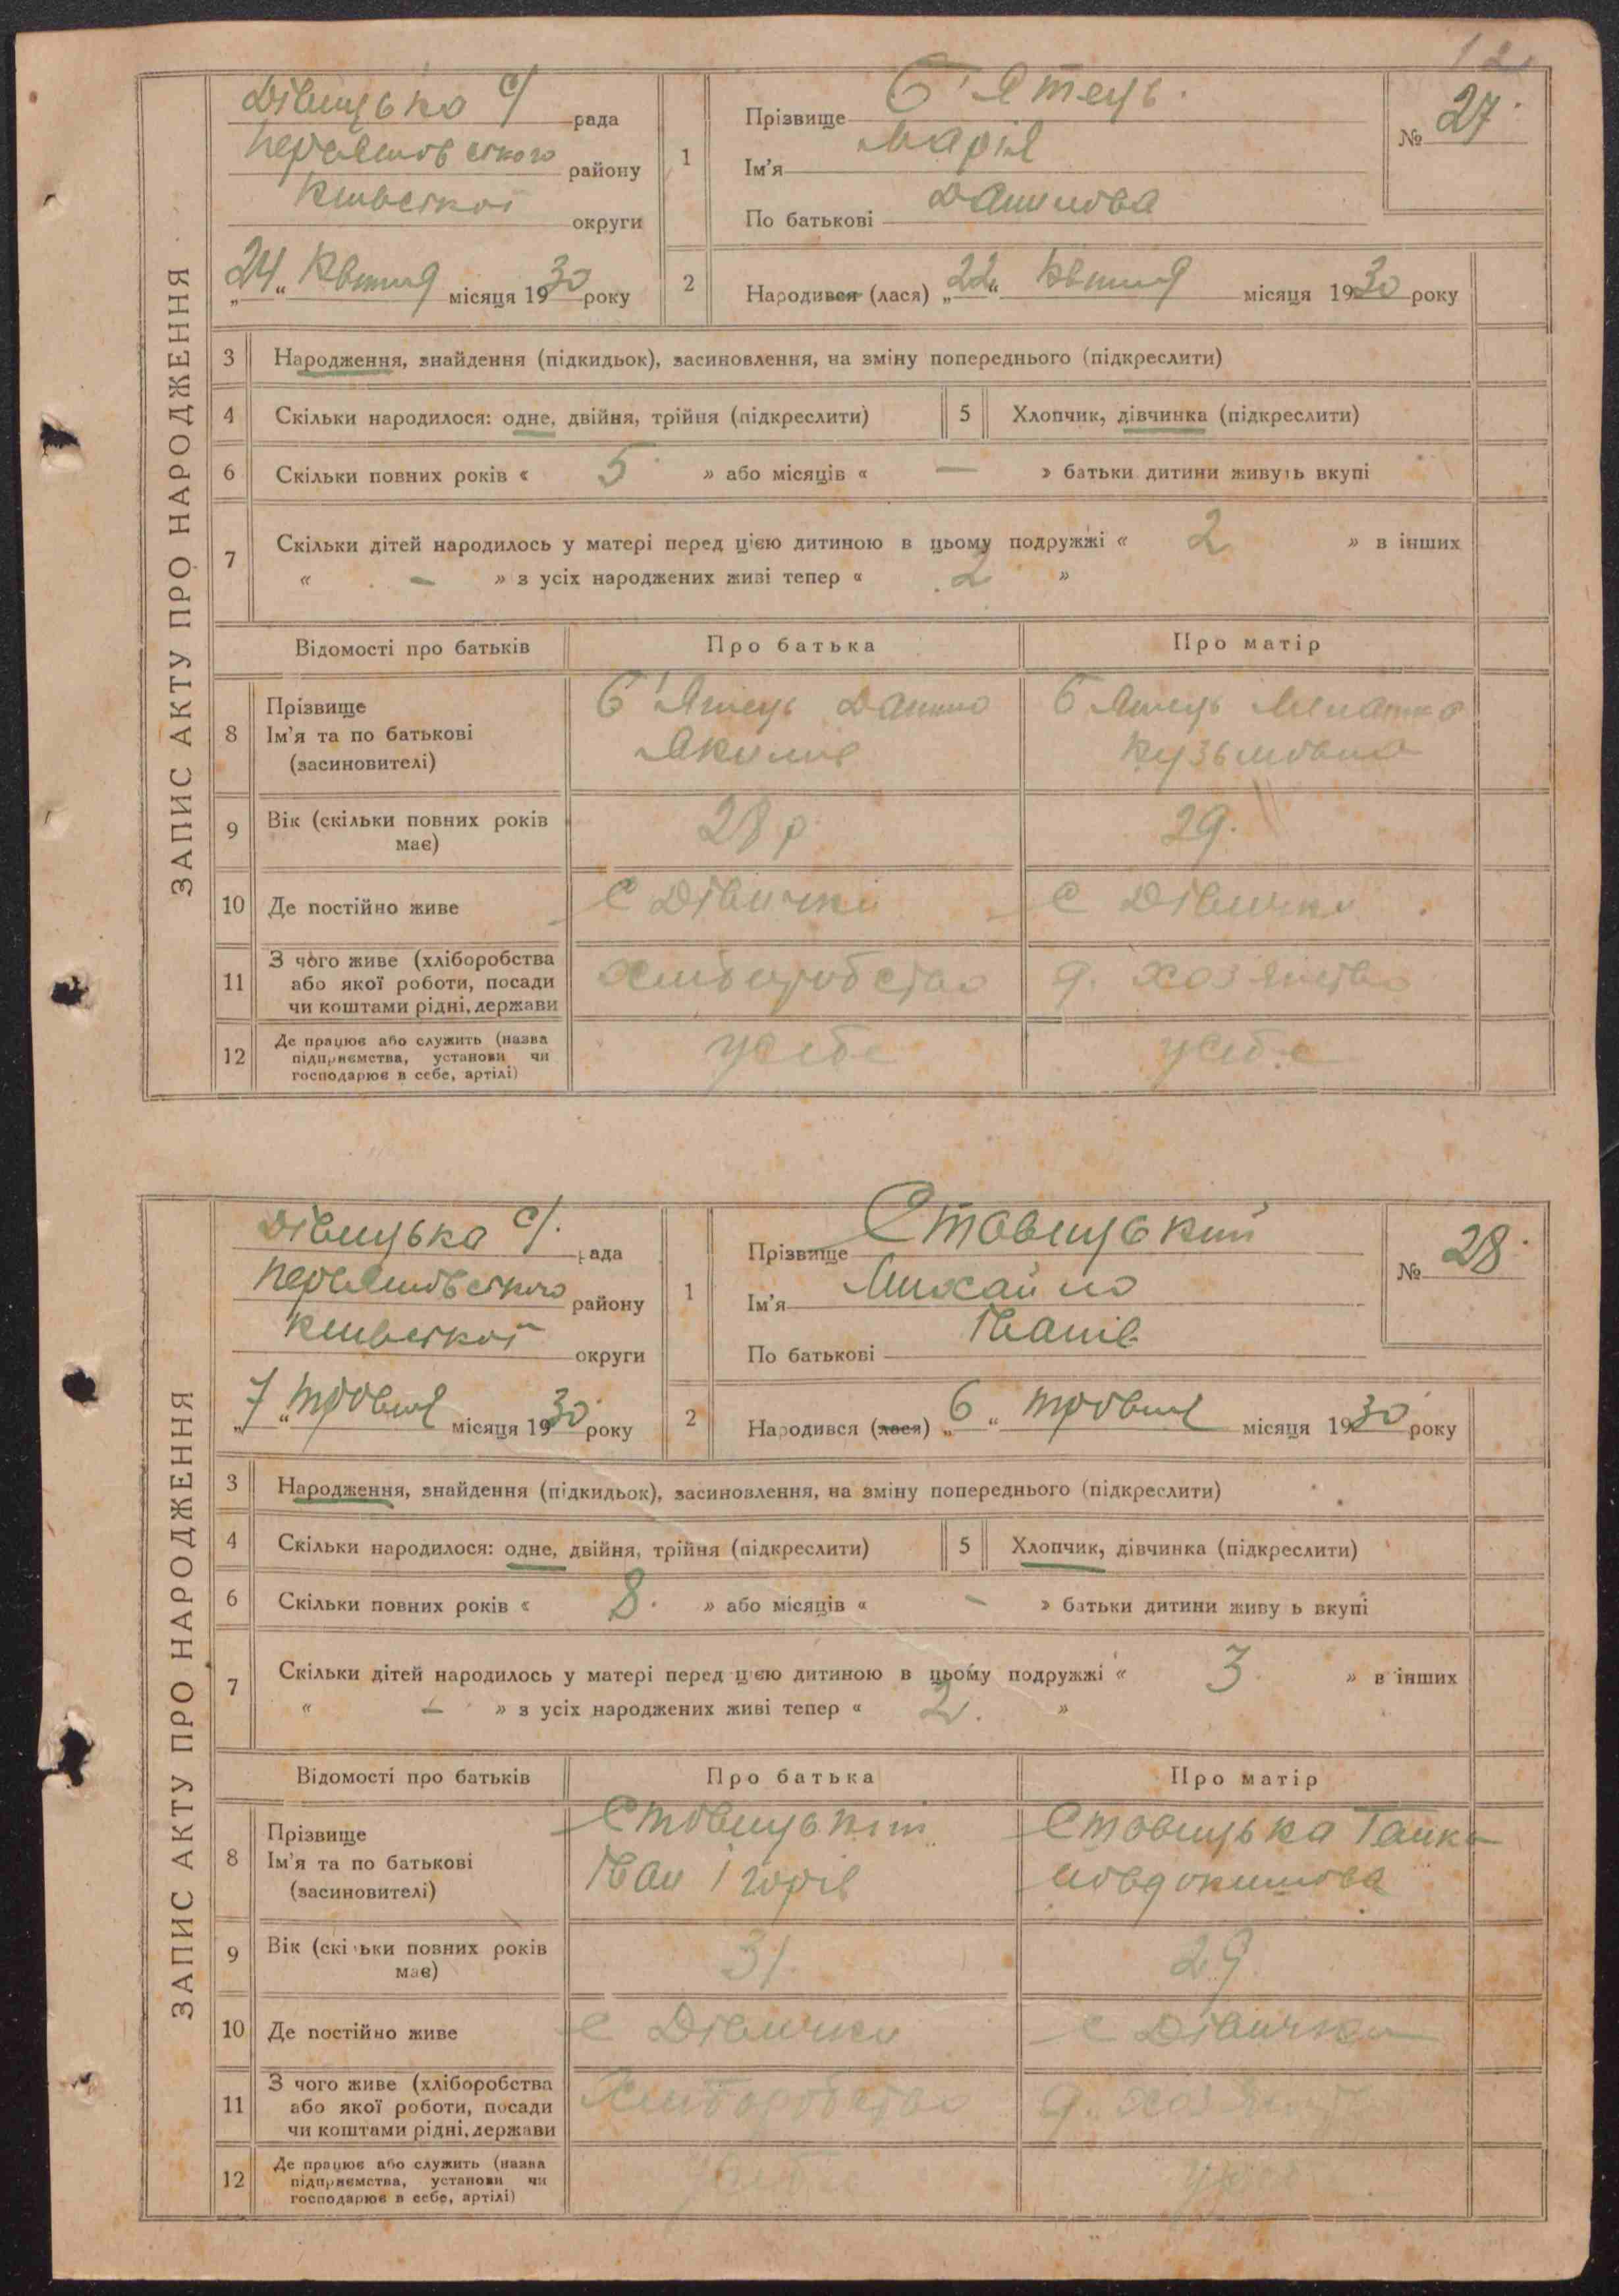 12
ЗАПИС АКТУ ПРО НАРОДЖЕННЯ
Дівицька с/ рада
Переяславського району
Київської округи
„24“ Квітня місяця 1930 року
1
Прізвище Є'ятець
Ім'я Марія
По батькові Данилова
№ 27
2
Народився (лася) „22“ Квітня місяця 1930 року
3 Народження, знайдення (підкидьок), засиновлення, на зміну попереднього (підкреслити)
4 Скільки народилося: одне, двійня, трійня (підкреслити) 5 Хлопчик, дівчинка (підкреслити)
6 Скільки повних років « 5 » або місяців « — » батьки дитини живуть вкупі
7 Скільки дітей народилось у матері перед цією дитиною в цьому подружжі « 2 » в інших
« – » з усіх народжених живі тепер « 2 »
Відомості про батьків Про батька Про матір
8 Прізвище Ім'я та по батькові (засновителі)
Є'ятець Данило Якилів
Є'ятець Кузьмовна
9 Вік (скільки повних років має) 28 р 29.
10 Де постійно живе с Дівички с Дівички
11 З чого живе (хліборобства або якої роботи, посади чи коштами рідні, держави хліборобство д. хозяйство
12 Де працює або служить (назва підприємства, установи чи господарює в себе, артілі) у себе у себе
ЗАПИС АКТУ ПРО НАРОДЖЕННЯ
Дівицька с/. рада
Переяславського району
Київської округи
„7“ Травня місяця 1930 року
1
Прізвище Ставицький
Ім'я Михайло
По батькові Іванів
№ 28
2
Народився (лася) „6“ Травня місяця 1930 року
3 Народження, знайдення (підкидьок), засиновлення, на зміну попереднього (підкреслити)
4 Скільки народилося: одне, двійня, трійня (підкреслити) 5 Хлопчик, дівчинка (підкреслити)
6 Скільки повних років « 8 » або місяців « – » батьки дитини живу ь вкупі
7 Скільки дітей народилось у матері перед цією дитиною в цьому подружжі « 3 » в інших
« – » з усіх народжених живі тепер « 2. »
Відомості про батьків Про батька Про матір
8 Прізвище Ім'я та по батькові (засиновителі)
Ставицький Іван Ігорів
Ставицька Ганка Йовдокимова
9 Вік (скільки повних років має) 31 29
10 Де постійно живе с Дівички с Дівички
11 З чого живе (хліборобства або якої роботи, посади чи коштами рідні, держави хліборобство д. хозяйство
12 Де працює або служить (назва підприємства, установи чи господарює в себе, артілі) у себе у себе